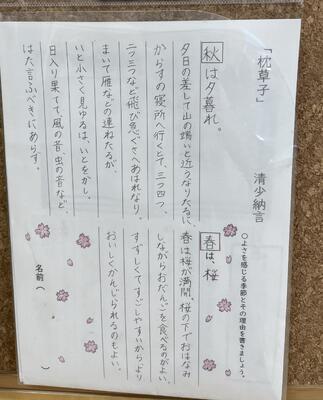 「枕草子」
清少納言
秋は夕暮れ。
夕日の差して山の端いと近うなりたるに、
からすの寝所へ行くとて、三つ四つ、
二つ三つなど飛び急ぐさへあはれなり。
まいて雁などの連ねたるが、
いと小さく見ゆるは、いとをかし。
日入り果てて、風の音、虫の音など、
はた言ふべきにあらず。
○よさを感じる季節とその理由を書きましょう。
春は、桜
春は桜が満開。桜の下でおはなみ
しながらおだんごを食べるのがよい。
すずしくてすごしやすいから、より
おいしくかんじられるのもよい。
名前（　　　）